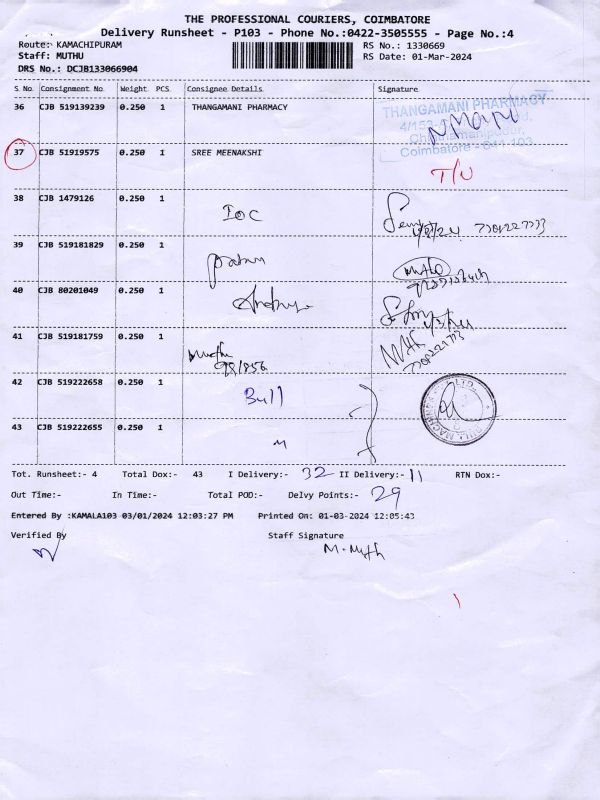 THE PROFESSIONAL COURIERS, COIMBATORE
Delivery Runsheet - P103 - Phone No.:0422-3505555 - Page No.:4
Route: KAMACHIPURAM RS No.: 1330669
Staff: MUTHU RS Date: 01-Mar-2024
DRS No.: DCJB133066904
S No Consignment No Weight PCS Consignee Details Signature
36 CJB 519139239 0.250 1 THANGAMANI PHARMACY
THANGAMANI PHARMACY
Coimbatore - 641 103
37 CJB 51919575 0.250 1 SREE MEENAKSHI T/U
38 CJB 1479126 0.250 1 IOC 7301227733
39 CJB 519181829 0.250 1
40 CJB 80201049 0.250 1
41 CJB 519181759 0.250 1 Muthu
98/856
42 CJB 519222658 0.250 1 Bull
43 CJB 519222655 0.250 1 "
Tot. Runsheet:- 4 Total Dox:- 43 I Delivery:- 32 II Delivery:- 11 RTN Dox:-
Out Time:- In Time:- Total POD:- Delvy Points:- 29
Entered By :KAMALA103 03/01/2024 12:03:27 PM Printed On: 01-03-2024 12:05:43
Verified By Staff Signature
M. Muth